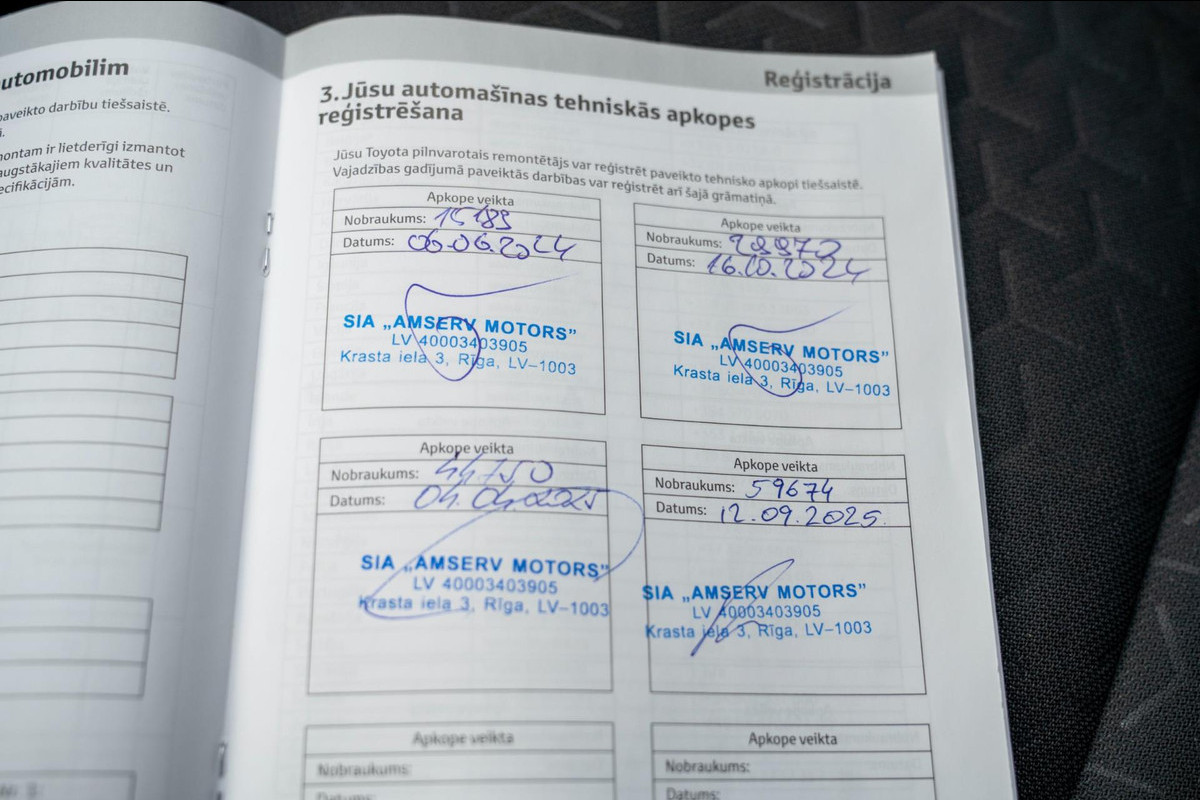 utomobilim
paveikto darbību tiešsaistē.
i.
montam ir lietderīgi izmantot
augstākajiem kvalitātes un
ecifikācijām.
Reģistrācija
3. Jūsu automašīnas tehniskās apkopes
reģistrēšana
Jūsu Toyota pilnvarotais remontētājs var reģistrēt paveikto tehnisko apkopi tiešsaistē.
Vajadzības gadījumā paveiktās darbības var reģistrēt arī šajā grāmatiņā.
Apkope veikta
Nobraukums: 15189
Datums: 06.06.2024
SIA „AMSERV MOTORS”
LV 40003403905
Krasta iela 3, Rīga, LV–1003
Apkope veikta
Nobraukums:
Datums: 16.10.2024
SIA „AMSERV MOTORS”
LV 40003403905
Krasta iela 3, Rīga, LV–1003
Apkope veikta
Nobraukums: 44750
Datums: 04.04.2025
SIA „AMSERV MOTORS”
LV 40003403905
Krasta iela 3, Rīga, LV–1003
Apkope veikta
Nobraukums: 59674
Datums: 12.09.2025.
SIA „AMSERV MOTORS”
LV 40003403905
Krasta iela 3, Rīga, LV–1003
Apkope veikta
Nobraukums:
Datums:
Apkope veikta
Nobraukums:
Datums: